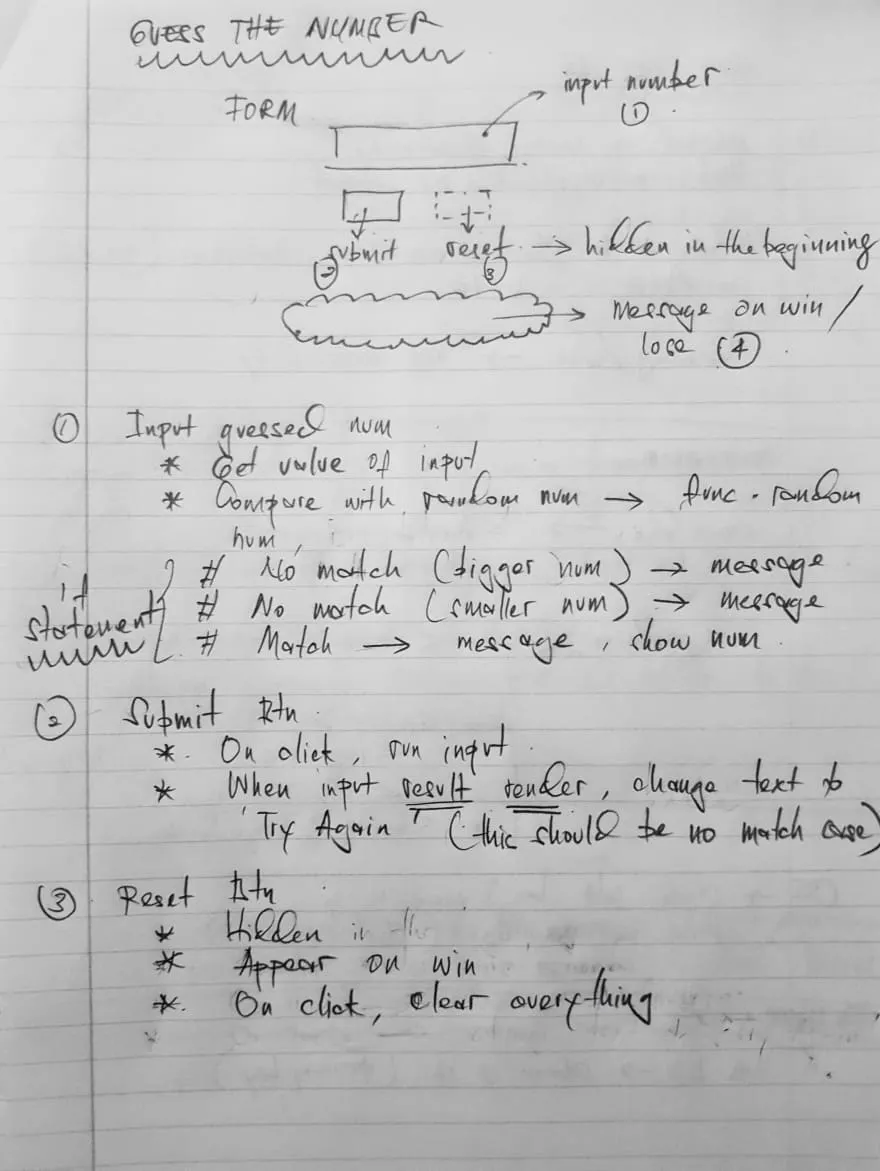 GUESS THE NUMBER
FORM
input number
①
submit reset → hidden in the beginning
② ③
→ message on win /
lose ④ .
① Input guessed num
* Get value of input
* Compare with random num → func. random
num,
if
statement
# No match (bigger num) → message
# No match (smaller num) → message
# Match → message, show num
② Submit Btn.
* On click, run input.
* When input result render, change text to
'Try Again' (this should be no match case)
③ Reset Btn.
* Hidden in
* Appear on win
* On click, clear everything